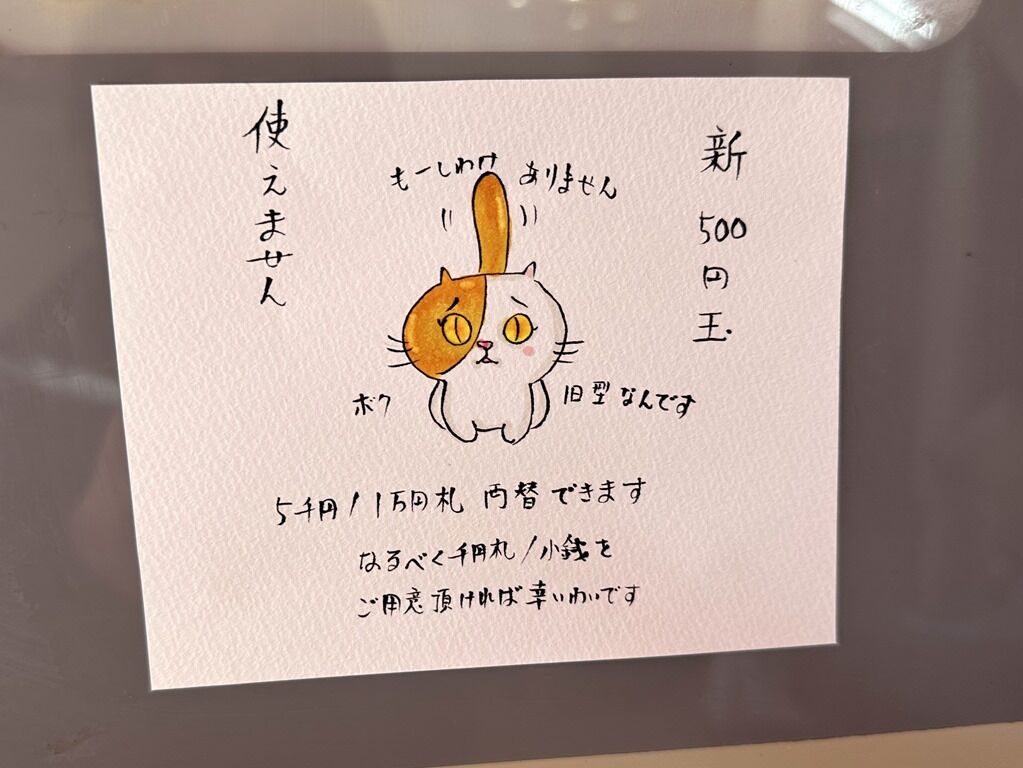 新500円玉
使えません
もーしわけ ありません
ボク 旧型なんです
5千円/1万円札 両替できます
なるべく千円札/小銭を
ご用意頂ければ幸いわいです